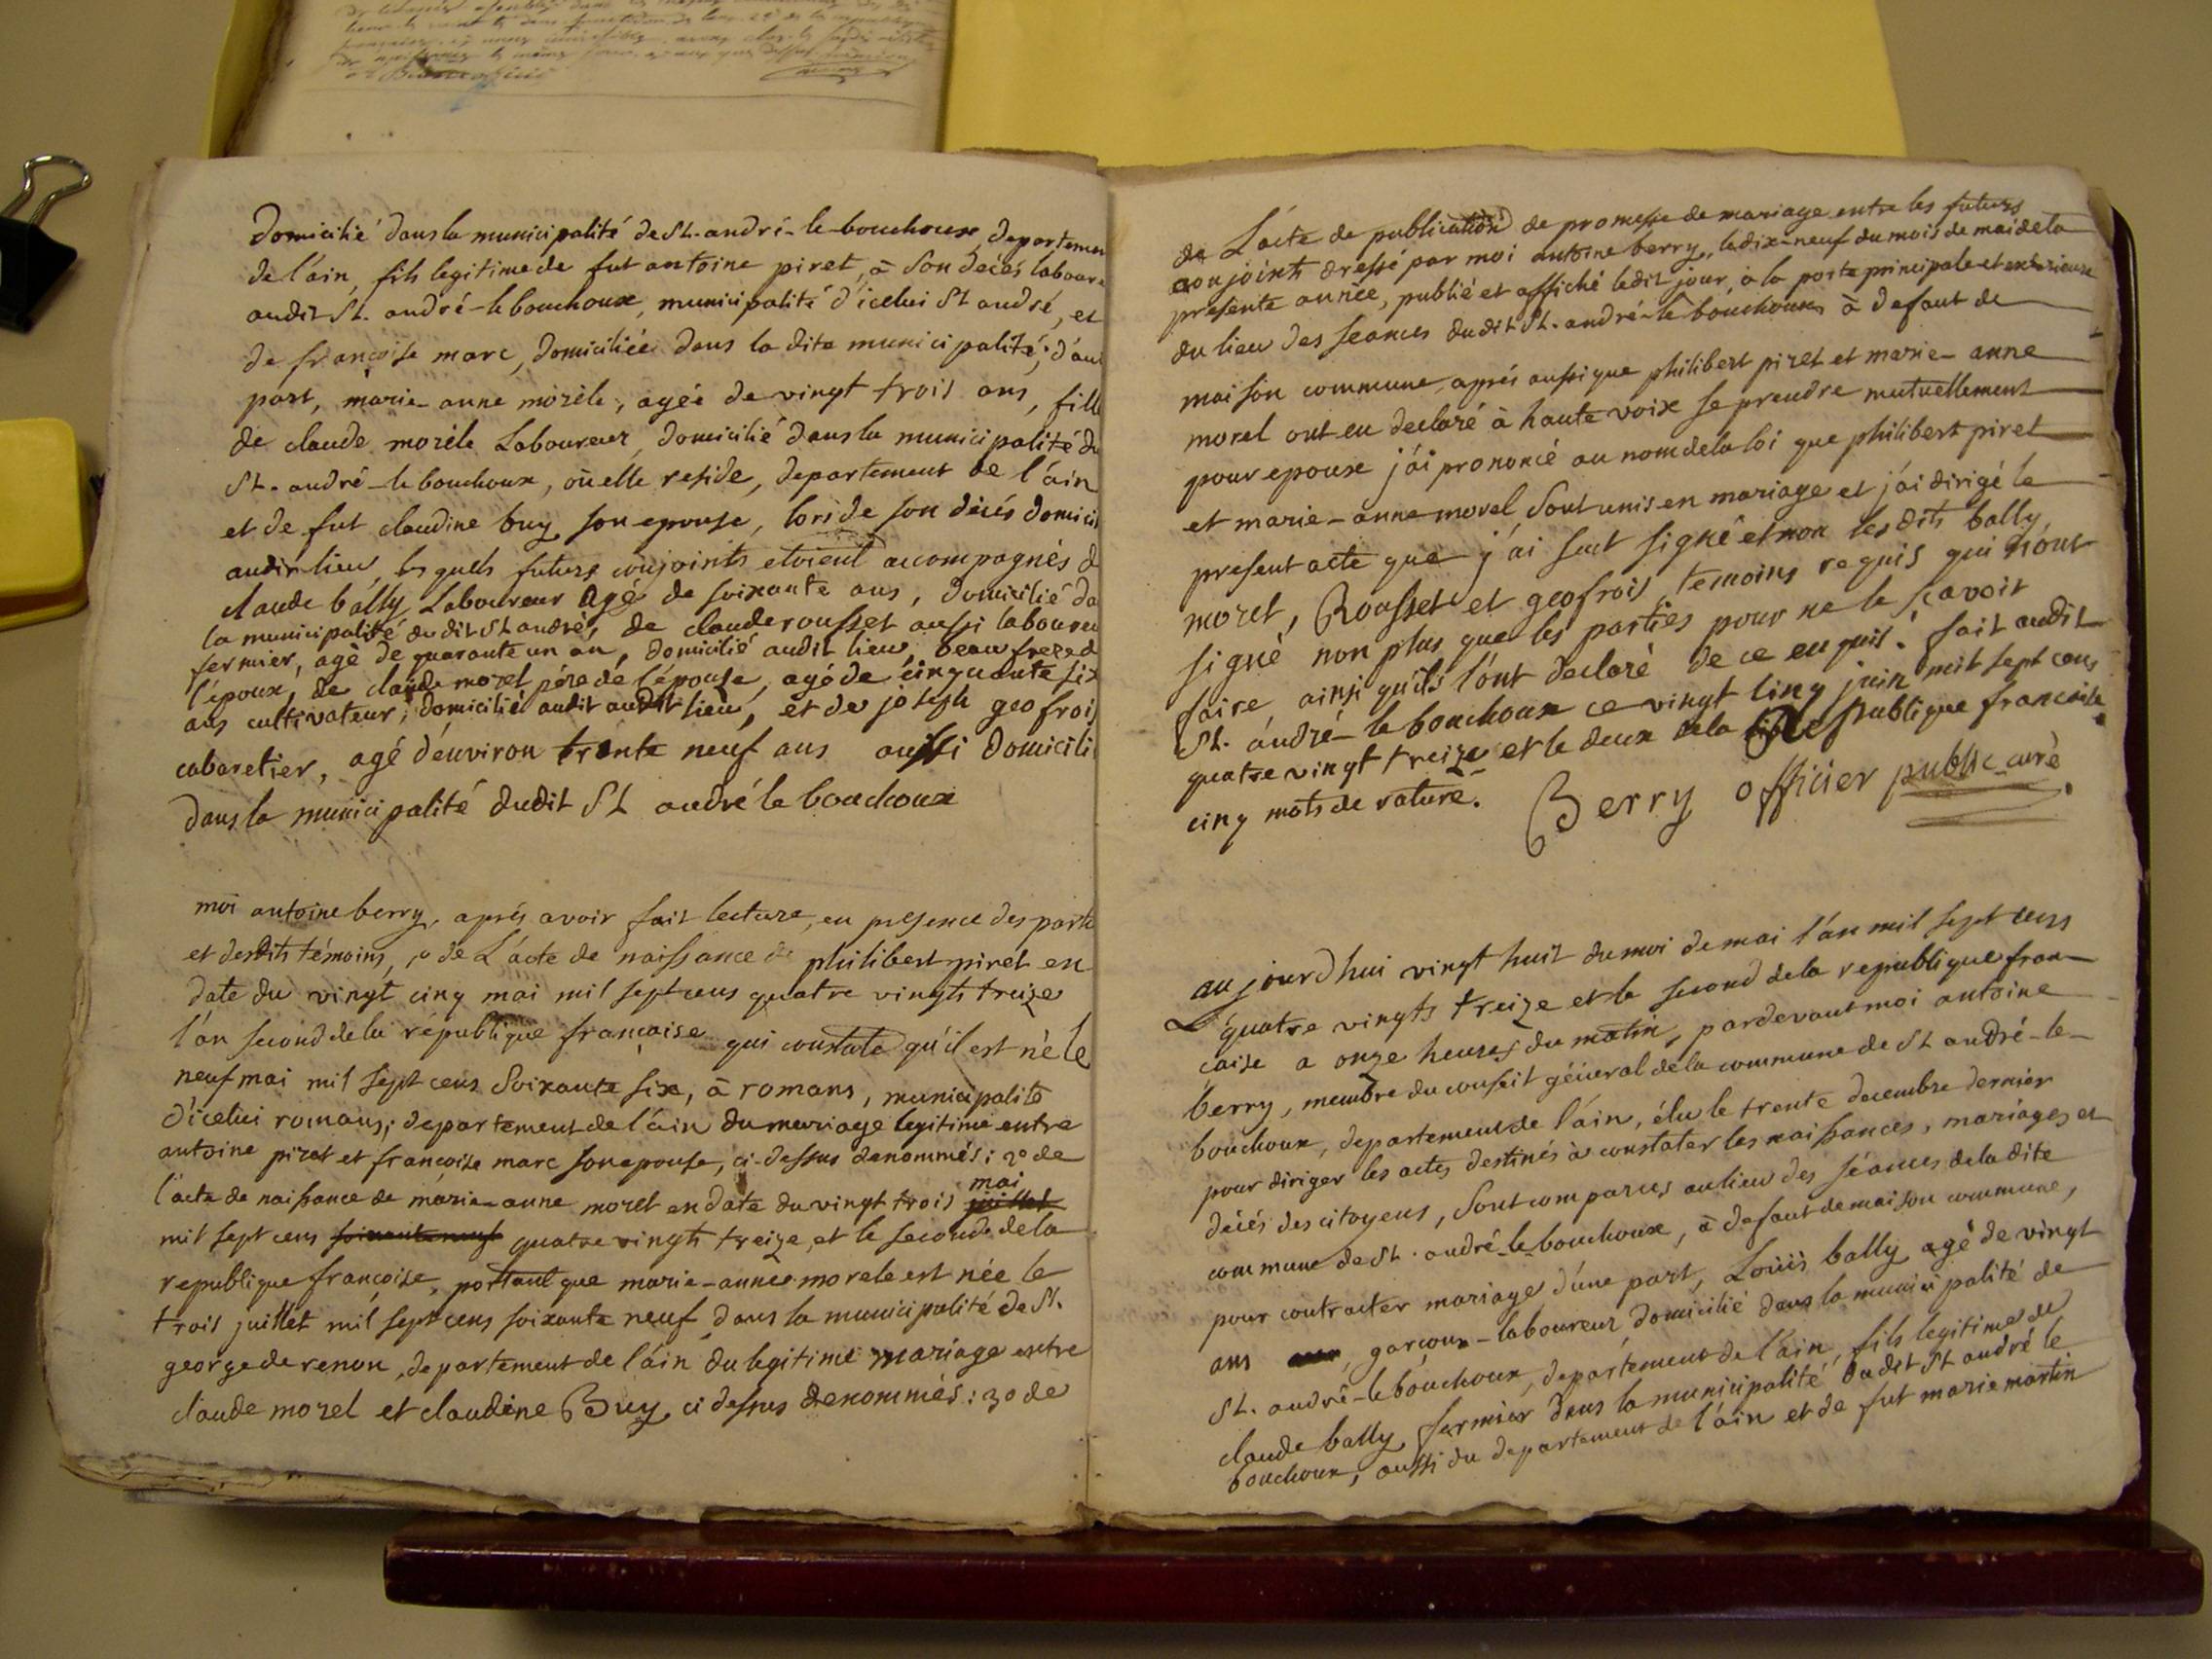 domicilié dans la municipalité de St. andré-le-bouchoux, departemen
de l'ain, fils legitime de fut antoine piret, à son decés laboure
audit St. andré-le bouchoux, municipalité d'icelui St andré, et
de francoise marc, domiciliée dans la dite municipalité; d'au
part, marie-anne morèle, agée de vingt trois ans, fille
de claude morèle Laboureur, domicilié dans la municipalité du
St. andré-le bouchoux, où elle reside, departement de l'ain
et de fut claudine buy son epouse, lors de son décés domicili
audit lieu, lesquels futurs conjoints etoient accompagnés d
claude bally Laboureur agé de soixante ans, domicilié da
la municipalité du dit St andré, de claude rousset aussi laboureu
fermier, agé de quarante un an, domicilié audit lieu, beau frere d
l'époux, de claude morel pére de l'épouse, agé de cinquante six
ans cultivateur, domicilié audit audit lieu, et de joseph geofroi
cabaretier, agé d'environ trente neuf ans aussi domicili
dans la municipalité dudit St andré le bouchoux
moi antoine berry, aprés avoir fait lecture, en presence des parti
et desdits témoins, 1º de L'acte de naissance de philibert piret en
date du vingt cinq mai mil sept cens quatre vingts treize
l'an second de la république françaisе qui constate qu'il est né le
neuf mai mil sept cens soixante six, à romans, municipalité
d'icelui romans, departement de l'ain du mariage legitime entre
antoine piret et francoise marc son epouse, ci-dessus denommés; 2º de
l'acte de naissance de marie-anne morel en date du vingt trois juillet mai
mil sept cens soixante neuf quatre vingts treize, et le second de la
republique francoise, portant que marie-anne morele est née le
trois juillet mil sept cens soixante neuf dans la municipalité de St.
george de renon, departement de l'ain du legitime mariage entre
claude morel et claudine Buy ci dessus denommés: 3º de
de L'acte de publication de promesse de mariage entre les futurs
conjoints dressé par moi antoine berry, le dix-neuf du mois de mai de la
presente année, publié et affiché ledit jour, à la porte principale et exterieure
du lieu des seances dudit St. andré-le bouchoux à defaut de
maison commune, aprés aussi que philibert piret et marie-anne
morel ont eu declaré à haute voix se prendre mutuellement
pour epoux j'ai prononcé au nom de la loi que philibert piret
et marie-anne morel sont unis en mariage et j'ai dirigé le
present acte que j'ai seul signé et non les dits bally
morel, Rousset et geofroi temoins requis qui n'ont
signé non plus que les parties pour ne le sçavoir
faire, ainsi qu'ils l'ont declaré de ce enquis. fait audit
St. andré-le bouchoux ce vingt cinq juin mil sept cens
quatre vingt treize et le deux de la Republique francoise.
cinq mots de rature. Berry officier public curé
aujourd'hui vingt huit du moi de mai l'an mil sept cens
quatre vingts treize et le second de la republique fran-
caise a onze heures du matin, pardevant moi antoine
berry, membre du conseil général de la commune de St andré-le-
bouchoux, departement de l'ain, élu le trente decembre dernier
pour diriger les actes destinés à constater les naissances, mariages et
décés des citoyens, sont comparus au lieu des séances de la dite
commune de St. andré-le-bouchoux, à defaut de maison commune,
pour contracter mariage d'une part, Louis bally agé de vingt
ans garcoux-laboureur domicilié dans la municipalité de
St. andré-le bouchoux, departement de l'ain, fils legitime de
claude bally fermier dans la municipalité dudit St andré le
bouchoux, aussi du departement de l'ain et de fut marie martin